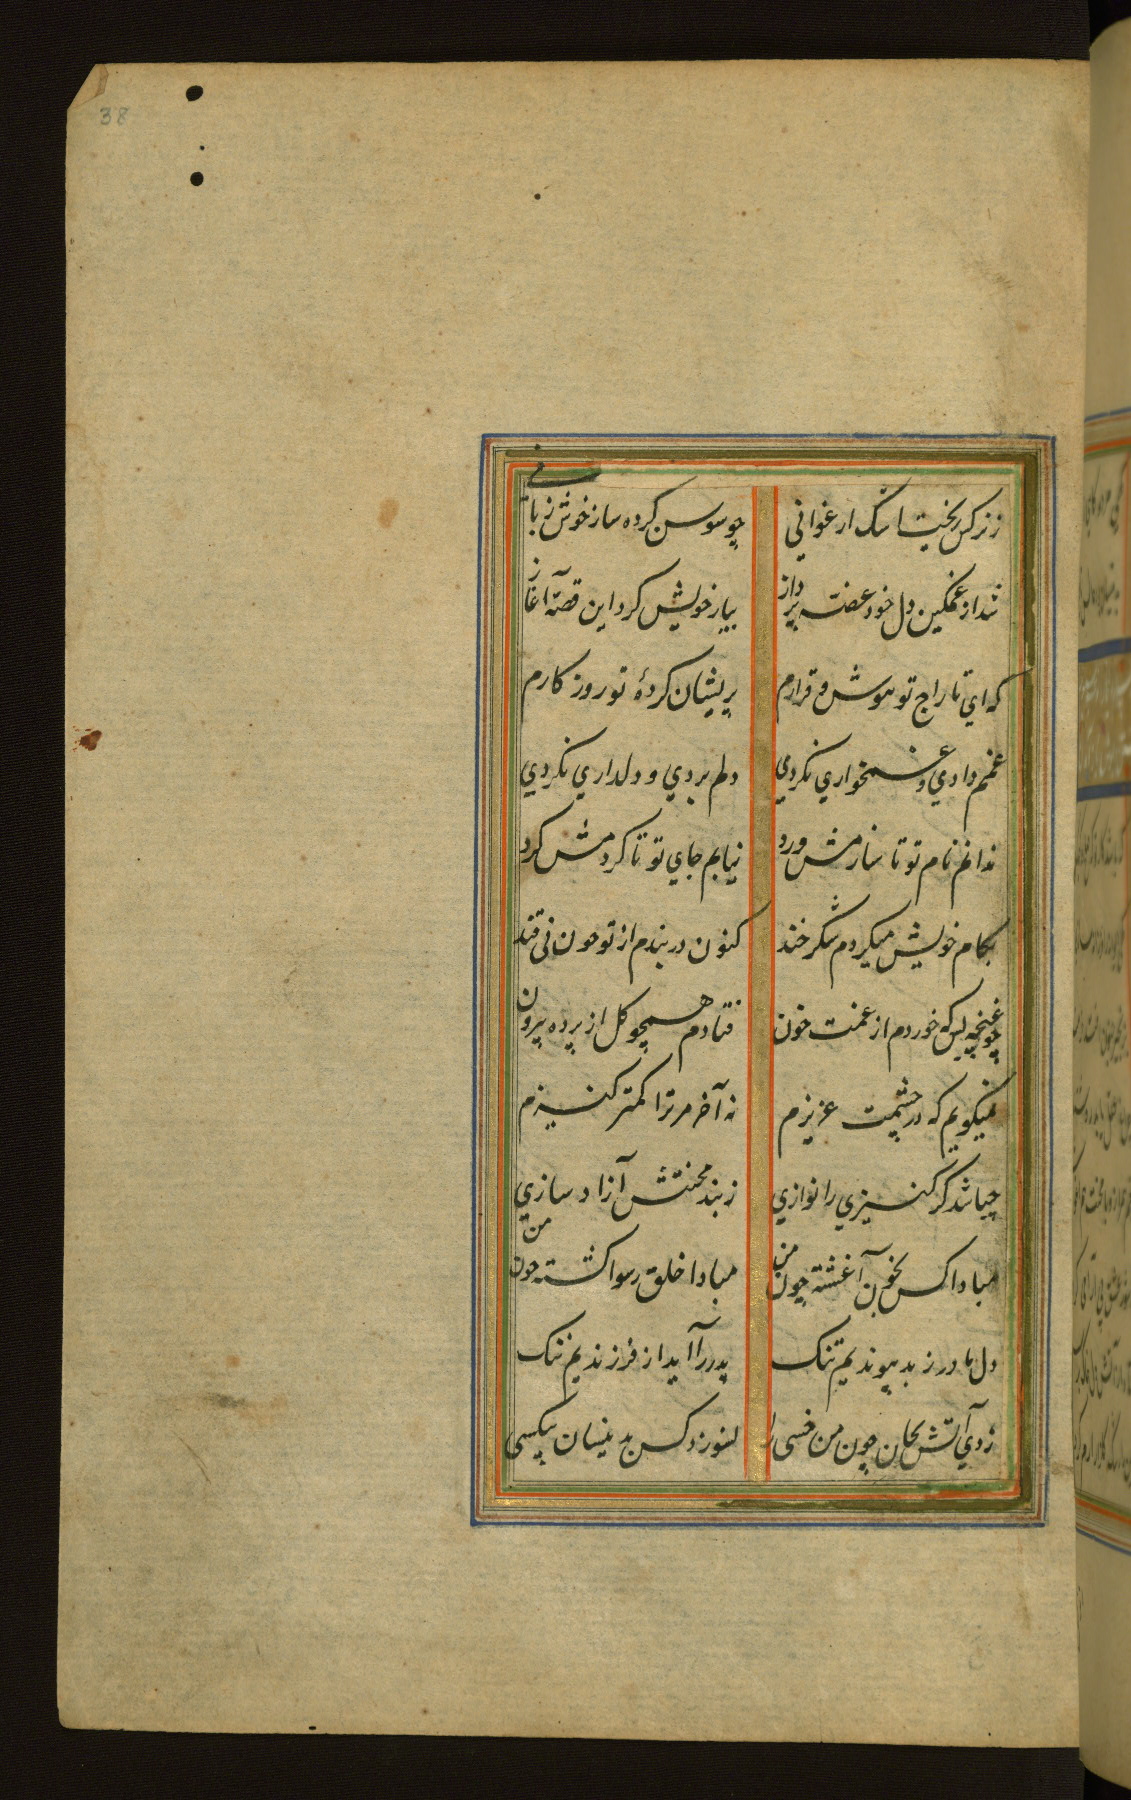 38
ز نرکس ریخت اشک ارغوانی چو سوسن کرده ساز خوش زبانی
شد از غمکین دل خود غصه پرداز بیار خویش کرد این قصه آغاز
که ای تاراج تو هوش و قرارم پریشان کردهٔ تو روز کارم
غمم دادی و غمخواری نکردی دلم بردی و دلداری نکردی
ندانم نام تو تا سازمش ورد نیابم جای تو تا کردمش کرد
بکام خویش میکردم شکر خند کنون در بندم از تو چون نی قند
چو غنچه بس که خوردم از غمت خون فتادم همچو کل از پرده بیرون
نمیکویم که در چشمت عزیزم نه آخر مر ترا کمتر کنیزم
چباشد کر کنیزی را نوازی ز بند محنتش آزاد سازی
مبادا کس بخون آغشته چون من مبادا خلق رسوا کشته چون من
دل مادر ز بد پیوندیم تنک پدر را آید از فرزندیم ننک
زدی آتش بجان چون من خسی را نسوزد کس بدینسان بیکسی